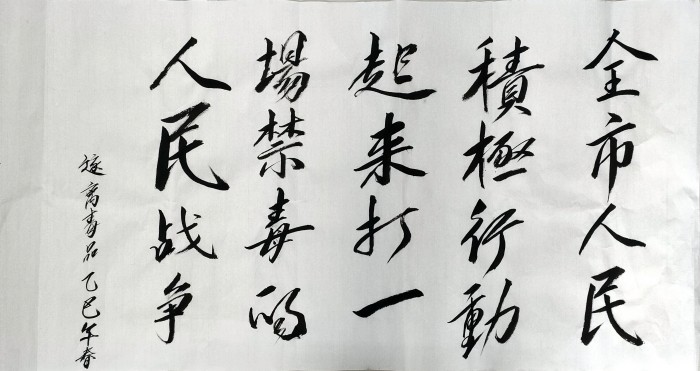 全市人民
積極行動
起来打一
場禁毒的
人民战争
乙巳年春